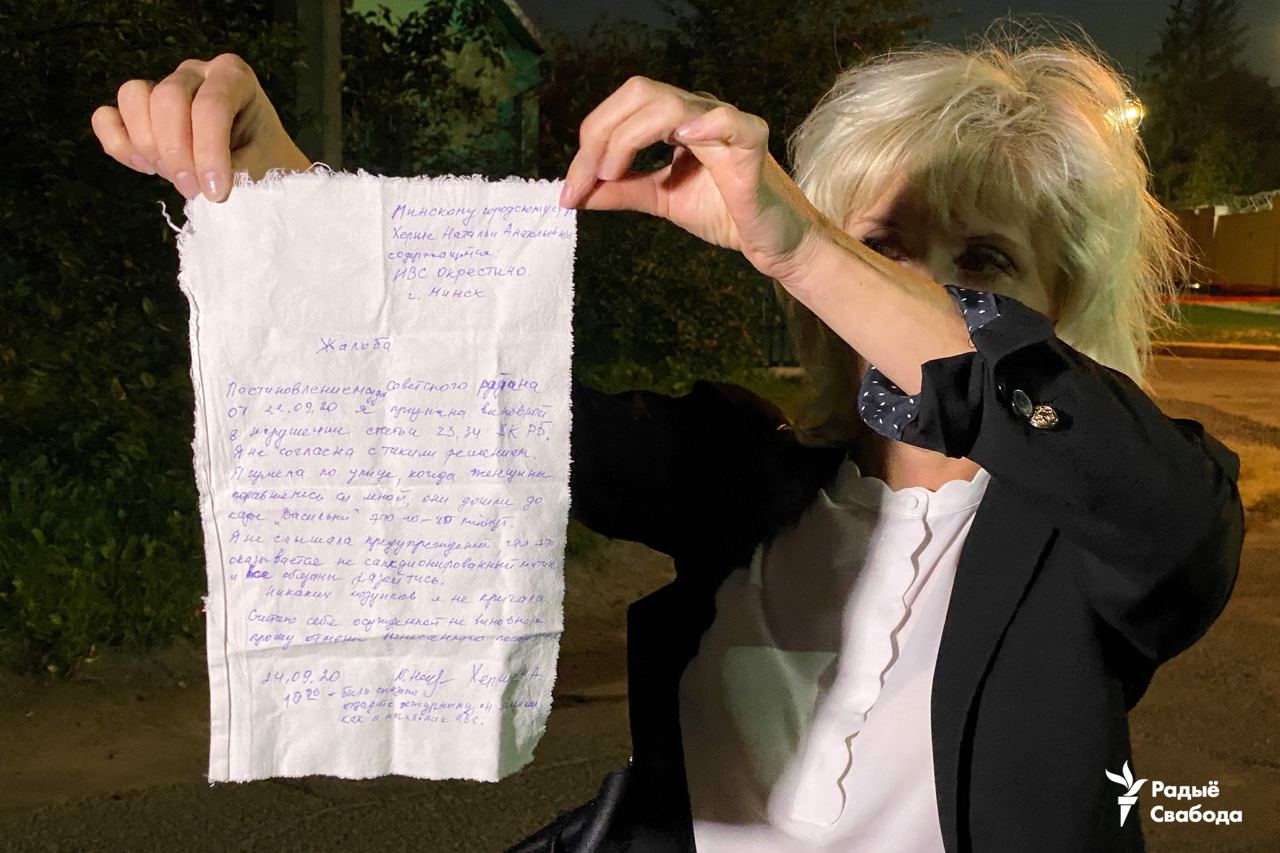 Минскому городскому суду
Херше Натальи Анатольевны
содержащийся:
ИВС Окрестино.
г. Минск
Жалоба
Постановлением суда Советского района
от 22.09.20 я признана виновной
в нарушении статьи 23.34 КК РБ.
Я не согласна с таким решением.
Я гуляла по улице, когда женщины
поравнялись со мной, они дошли до
кафе "Васильки" это 10-20 минут.
Я не слышала предупреждений что это
оказывается не санкционированный митинг
и все обязаны разойтись.
Никаких лозунгов я не кричала
Считаю себе осужденной не виновной
прошу отмены
24.09.20 Херше Н.А.
было сказано
отдайте дежурному, он
как и начальник ИВС.
Радыё
Свабода